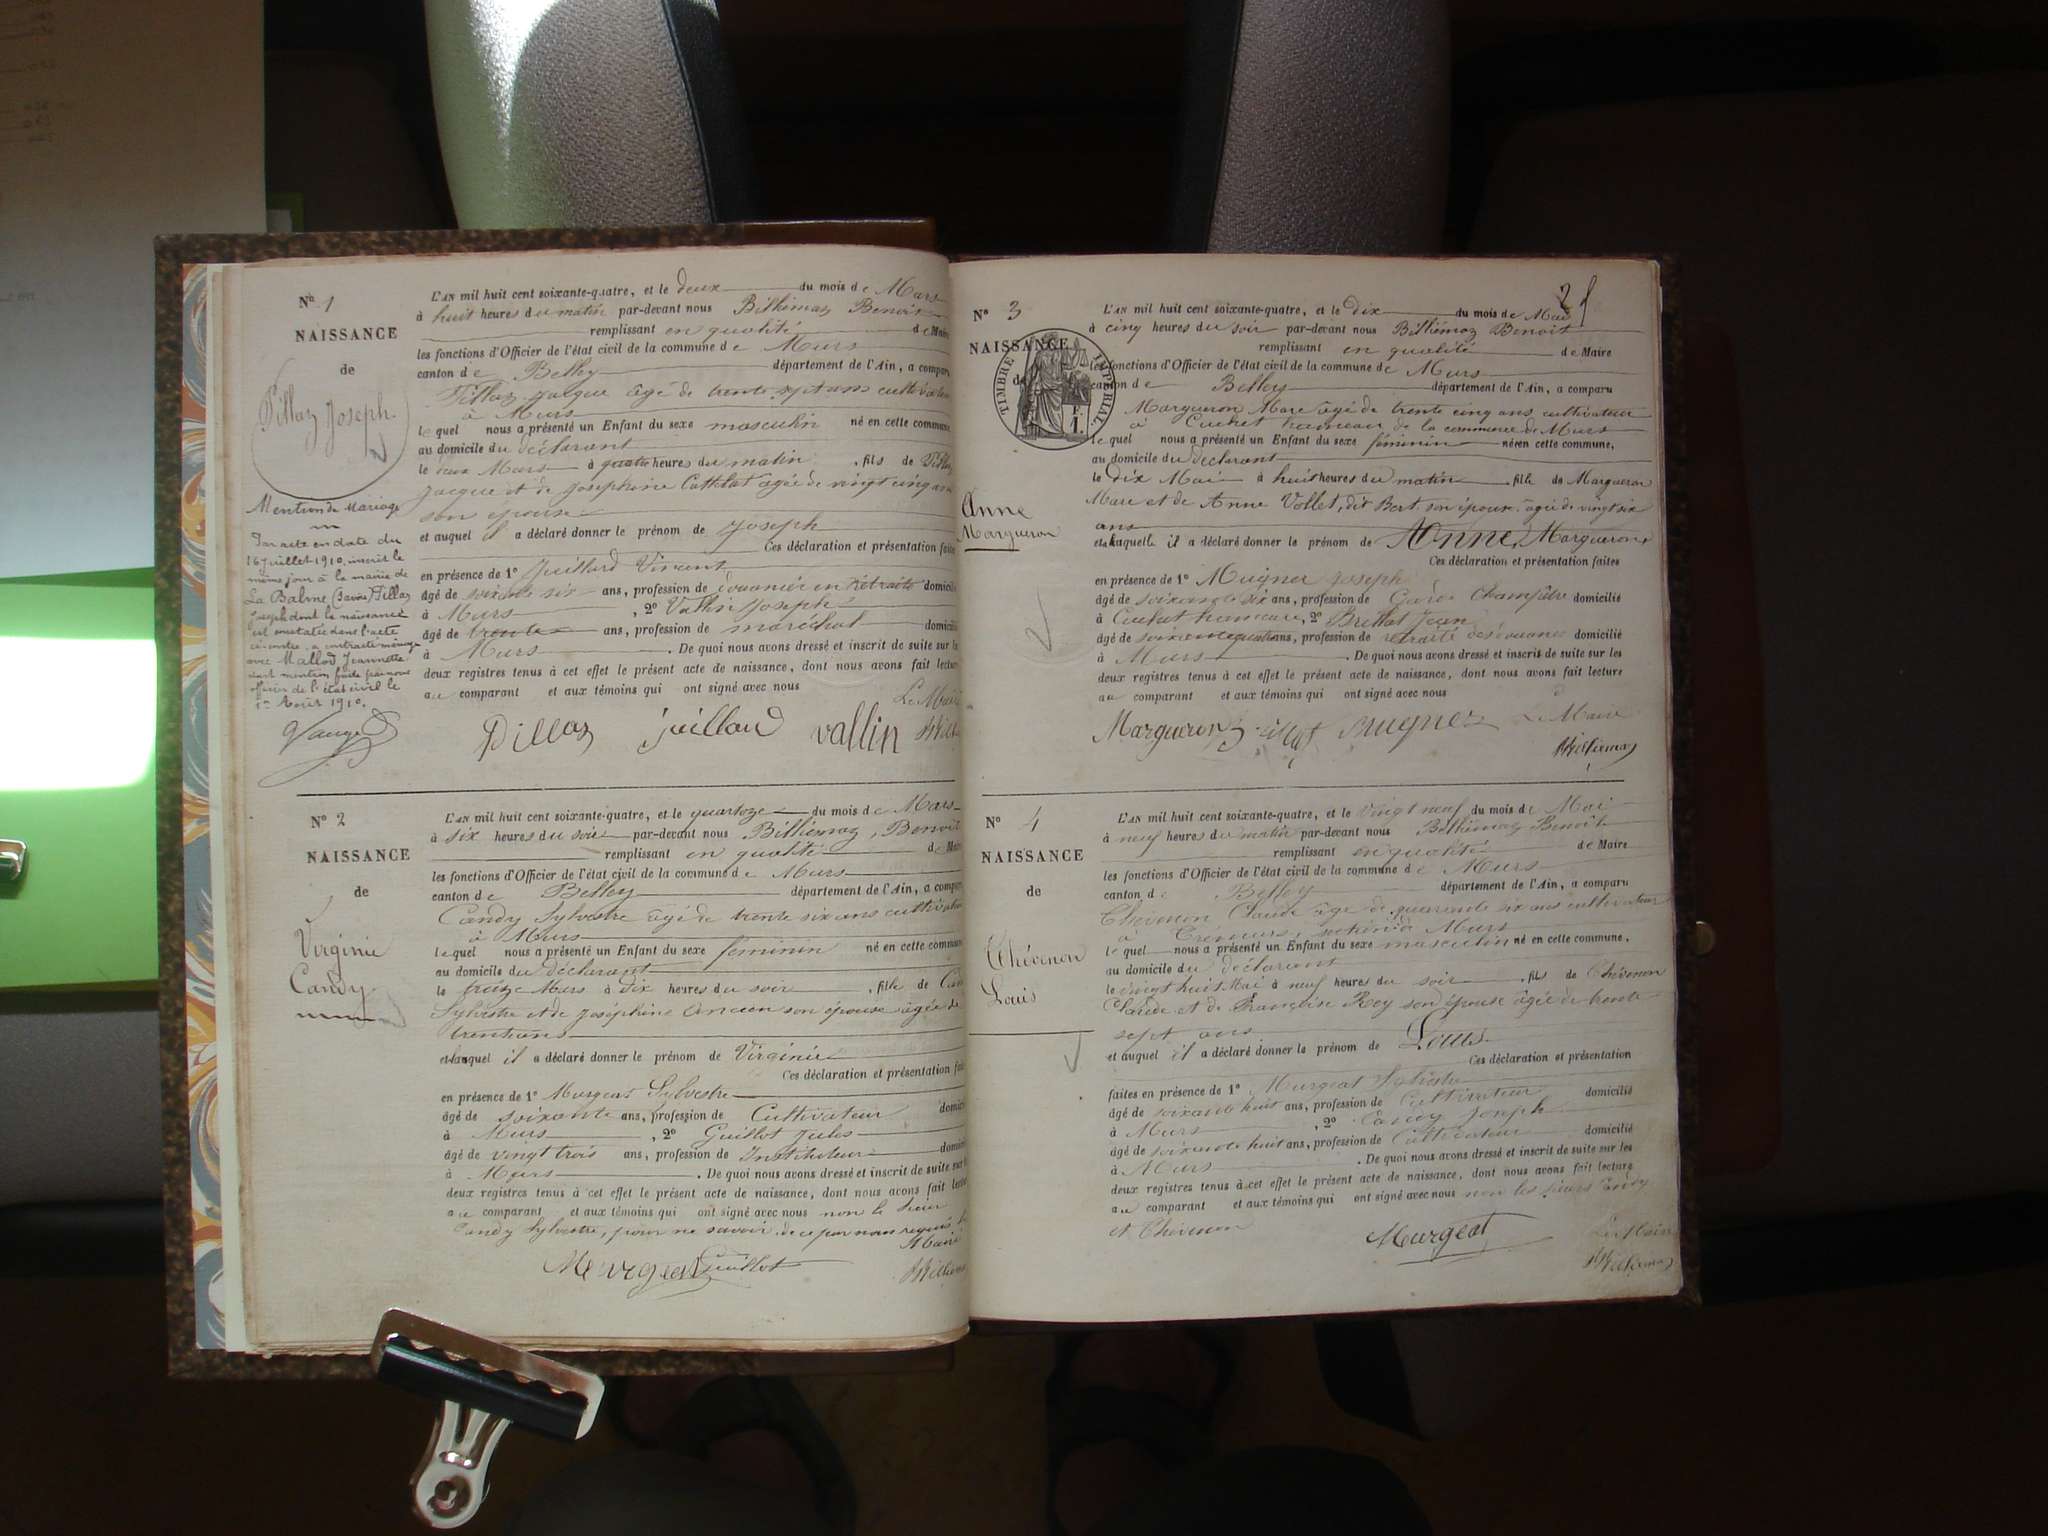 Nº 1
NAISSANCE
de
Pillaz Joseph
Mention de Mariage
Par acte en date du
16 juillet 1910, inscrit le
même jour à la mairie de
La Balme (Savoie) Pillaz
Joseph dont la naissance
est constatée dans l'acte
ci-contre, a contracté mariage
avec Mallod Jeannette
dont mention faite par nous
officier de l'état civil le
1er Août 1910.
L'AN mil huit cent soixante-quatre, et le deux du mois de Mars
à huit heures du matin par-devant nous Billiémaz Benoit
remplissant en qualité de Maire
les fonctions d'Officier de l'état civil de la commune de Murs
canton de Belley département de l'Ain, a comparu
Pillaz Jacque âgé de trente sept ans cultivateur
à Murs
lequel nous a présenté un Enfant du sexe masculin né en cette commune,
au domicile du déclarant
le deux Mars à quatre heures du matin, fils de Pillaz
Jacque et de Josephine Cathlat agée de vingt cinq ans
son épouse
et auquel il a déclaré donner le prénom de Joseph
Ces déclaration et présentation faites
en présence de 1º Juillard Vincent
âgé de soixante six ans, profession de douanier en retraite domicilié
à Murs, 2º Vallin Joseph
âgé de trente ans, profession de maréchal domicilié
à Murs. De quoi nous avons dressé et inscrit de suite sur les
deux registres tenus à cet effet le présent acte de naissance, dont nous avons fait lecture
au comparant et aux témoins qui ont signé avec nous
Le Maire
Pillaz juillard vallin BBilliemaz
Nº 2
NAISSANCE
de
Virginie
Candy
L'AN mil huit cent soixante-quatre, et le quatorze du mois de Mars
à six heures du soir par-devant nous Billiémaz, Benoit
remplissant en qualité de Maire
les fonctions d'Officier de l'état civil de la commune de Murs
canton de Belley département de l'Ain, a comparu
Candy Sylvestre âgé de trente six ans cultivateur
à Murs
lequel nous a présenté un Enfant du sexe féminin né en cette commune
au domicile du déclarant
le treize Mars à dix heures du soir, fille de Candy
Sylvestre et de Joséphine Ancien son épouse agée de
trente ans
et laquel il a déclaré donner le prénom de Virginie
Ces déclaration et présentation faites
en présence de 1º Murgeat Sylvestre
âgé de soixante ans, profession de Cultivateur domicilié
à Murs, 2º Guillot Jules
âgé de vingt trois ans, profession de Instituteur domicilié
à Murs. De quoi nous avons dressé et inscrit de suite sur les
deux registres tenus à cet effet le présent acte de naissance, dont nous avons fait lecture
au comparant et aux témoins qui ont signé avec nous non le sieur
Candy Sylvestre, pour ne savoir, de ce par nous requis. Le
Maire
Murgeat Guillot BBilliemaz
2
Nº 3
NAISSANCE
de
TIMBRE IMPERIAL
F.
1.
Anne
Margueron
L'AN mil huit cent soixante-quatre, et le dix du mois de Mai
à cinq heures du soir par-devant nous Billiémaz Benoit
remplissant en qualité de Maire
les fonctions d'Officier de l'état civil de la commune de Murs
canton de Belley département de l'Ain, a comparu
Margueron Marc âgé de trente cinq ans, cultivateur
à Cuchet hameau de la commune de Murs
lequel nous a présenté un Enfant du sexe féminin née en cette commune,
au domicile du déclarant
le dix Mai à huit heures du matin, fille de Margueron
Marc et de Anne Vollet, dit Bert, son épouse, agée de vingt six
ans
et à laquelle il a déclaré donner le prénom de Anne, Margueron
Ces déclaration et présentation faites
en présence de 1º Mugner Joseph
âgé de soixante six ans, profession de Garde Champêtre domicilié
à Cuchet hameau, 2º Brillat Jean
âgé de ans, profession de retraité des douanes domicilié
à Murs. De quoi nous avons dressé et inscrit de suite sur les
deux registres tenus à cet effet le présent acte de naissance, dont nous avons fait lecture
au comparant et aux témoins qui ont signé avec nous
Margueron mugner Le Maire
BBilliemaz
Nº 4
NAISSANCE
de
Thévenon
Louis
L'AN mil huit cent soixante-quatre, et le vingt neuf du mois de Mai
à neuf heures du matin par-devant nous Billiémaz Benoit
remplissant en qualité de Maire
les fonctions d'Officier de l'état civil de la commune de Murs
canton de Belley département de l'Ain, a comparu
Thévenon Claude âgé de quarante six ans cultivateur
à section de Murs
lequel nous a présenté un Enfant du sexe masculin né en cette commune,
au domicile du déclarant
le vingt huit Mai à neuf heures du soir, fils de Thévenon
Claude et de Françoise Rey son épouse âgée de trente
sept ans
et auquel il a déclaré donner le prénom de Louis
Ces déclaration et présentation
faites en présence de 1º Murgeat Sylvestre
âgé de soixante huit ans, profession de Cultivateur domicilié
à Murs, 2º Candy Joseph
âgé de soixante huit ans, profession de Cultivateur domicilié
à Murs. De quoi nous avons dressé et inscrit de suite sur les
deux registres tenus à cet effet le présent acte de naissance, dont nous avons fait lecture
au comparant et aux témoins qui ont signé avec nous non les sieurs Candy
et Thévenon
Murgeat Le Maire
BBilliemaz